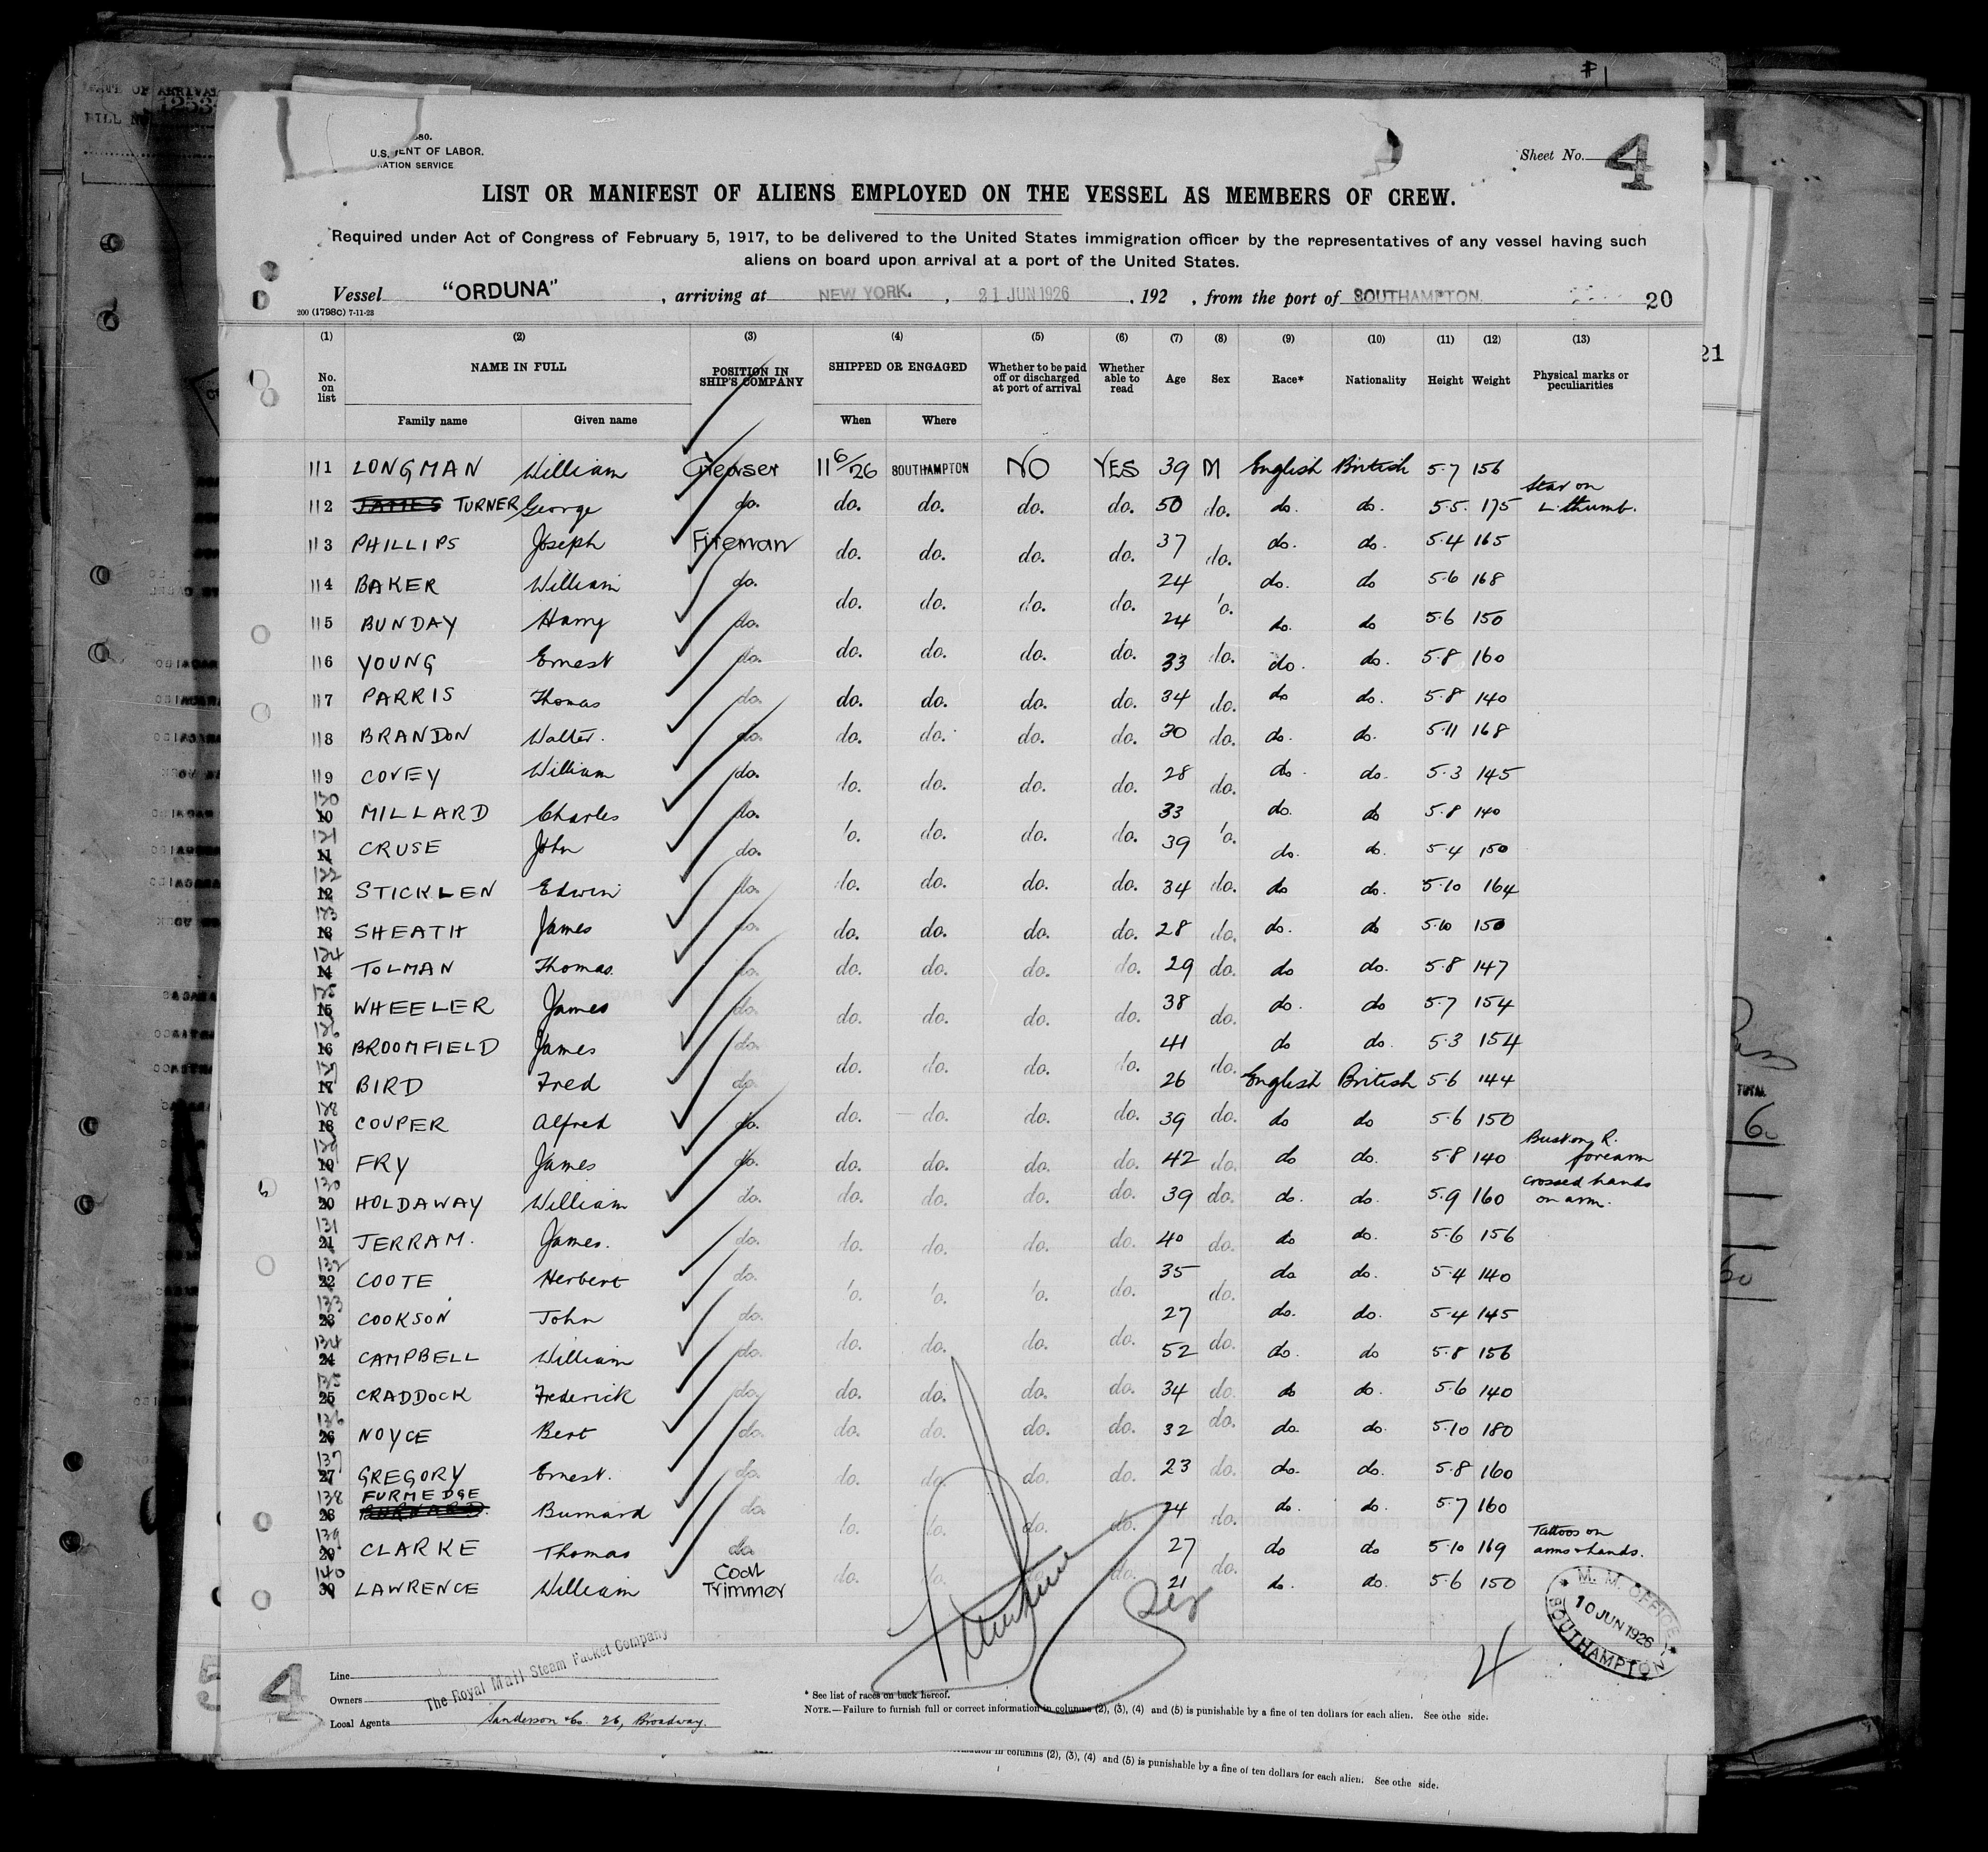 #1
TE OF ARRIVA
1253
BILL N
580.
U.S. ENT OF LABOR.
RATION SERVICE
Sheet No. 4
LIST OR MANIFEST OF ALIENS EMPLOYED ON THE VESSEL AS MEMBERS OF CREW.
Required under Act of Congress of February 5, 1917, to be delivered to the United States immigration officer by the representatives of any vessel having such
aliens on board upon arrival at a port of the United States.
Vessel "ORDUNA", arriving at NEW YORK., 21 JUN 1926, 192 , from the port of SOUTHAMPTON. 20
200 (1798c) 7-11-23
21
(1) (2) (3) (4) (5) (6) (7) (8) (9) (10) (11) (12) (13)
No. on list NAME IN FULL POSITION IN SHIP'S COMPANY SHIPPED OR ENGAGED Whether to be paid off or discharged at port of arrival Whether able to read Age Sex Race* Nationality Height Weight Physical marks or peculiarities
Family name Given name When Where
111 LONGMAN William Greaser 11 6/26 SOUTHAMPTON NO YES 39 M English British 5.7 156
112 JAMES TURNER George do. do. do. do. do. 50 do. do. do. 5.5. 175 Scar on L. thumb.
113 PHILLIPS Joseph Fireman do. do. do. do. 37 do. do. do. 5.4 165
114 BAKER William do. do. do. do. do. 24 'o. do. do 5.6 168
115 BUNDAY Harry do. do. do. do. do. 24 do. do 5.6 150
116 YOUNG Ernest do. do. do. do. do. 33 do. do. do. 5.8 160
117 PARRIS Thomas do. do. do. do. do. 34 do. do do. 5.8 140
118 BRANDON Walter. do. do. do. do. do. 30 do. do. do. 5.11 168
119 COVEY William do. do. do. do. do. 28 do. do. do. 5.3 145
120 10 MILLARD Charles do. 'o. do. do. do. 33 'o. do. do 5.8 140
121 11 CRUSE John do. 39 do. do. 5.4 150
122 12 STICKLEN Edwin do. do. do. do. do. 34 do. do do. 5.10 164
123 13 SHEATH James do. do. do. do. do. 28 do. do. do 5.10 150
124 14 TOLMAN Thomas. do. do. do. do. do. 29 do. do do. 5.8 147
125 15 WHEELER James do. do. do. do. do. 38 do. do. do 5.7 154
126 16 BROOMFIELD James do. 41 do do. 5.3 154
127 17 BIRD Fred do. do. do. do. do. 26 do. English British 5.6 144
128 18 COUPER Alfred do. do. do. do. do. 39 do. do do 5.6 150
129 19 FRY James do. do. do. do. do. 42 do. do do. 5.8 140 Bust on R. forearm
130 20 HOLDAWAY William do. do. do. do. do. 39 do. do. do. 5.9 160 Crossed hands on arm.
131 21 JERRAM. James. do. do. do. do. do. 40 do. do do. 5.6 156
132 22 COOTE Herbert do. 'o. 'o. 'o. do. 35 do. do do. 5.4 140
133 23 COOKSON John do. 27 do. do. 5.4 145
134 24 CAMPBELL William do. do. do. do. do. 52 do. do. do 5.8 156
135 25 CRADDOCK Frederick do. do. do. do. do. 34 do. do do. 5.6 140
136 26 NOYCE Bert do. do. do. do. do. 32 do. do. do. 5.10 180
137 27 GREGORY Ernest. do. do. do. do. do. 23 do. do. do. 5.8 160
138 28 FURMEDGE Burnard do. 'o. 'o. do. do. 24 do. do. do. 5.7 160
139 29 CLARKE Thomas do. 27 do do 5.10 169 Tattoos on arms & hands.
140 30 LAWRENCE William Coal Trimmer do. do. do. do. 21 do. do. do. 5.6 150
M. M. OFFICE
10 JUN 1926
SOUTHAMPTON
4
5 4
Line
Owners The Royal Mail Steam Packet Company
Local Agents Sanderson & Co. 26, Broadway.
* See list of races on back hereof.
NOTE.—Failure to furnish full or correct information in columns (2), (3), (4) and (5) is punishable by a fine of ten dollars for each alien. See othe side.
in columns (2), (3), (4) and (5) is punishable by a fine of ten dollars for each alien. See othe side.
TOTAL
60